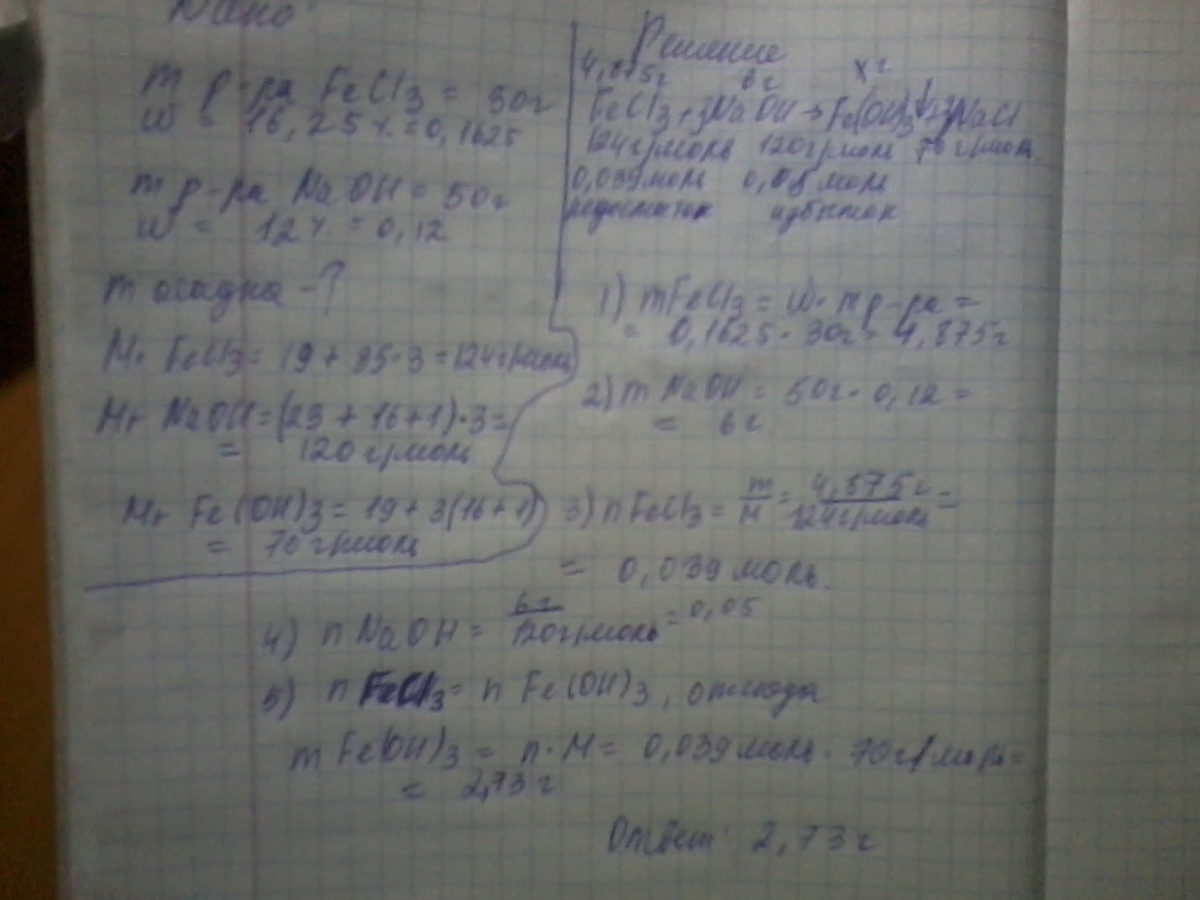 Дано:
m р-ра FeCl3 = 30г
w = 16,25% = 0,1625
m р-ра NaOH = 50г
w = 12% = 0,12
m осадка - ?
Mr FeCl3 = 19 + 35·3 = 124г/моль
Mr NaOH = (23 + 16+1)·3 =
= 120 г/моль
Mr Fe(OH)3 = 19 + 3(16+1)
= 70 г/моль
Решение
4,875г 6г xг
FeCl3 + 3NaOH → Fe(OH)3↓ + 3NaCl
124г/моль 120г/моль 70г/моль
0,039моль 0,05 моль
недостаток избыток
1) m FeCl3 = w · m р-ра =
= 0,1625 · 30г = 4,875г
2) m NaOH = 50г · 0,12 =
= 6г
3) n FeCl3 = m/M = 4,875г/124г/моль =
= 0,039 моль.
4) n NaOH = 6г/120г/моль = 0,05
5) n FeCl3 = n Fe(OH)3, отсюда
m Fe(OH)3 = n·M = 0,039 моль · 70г/моль =
= 2,73 г
Ответ: 2,73г